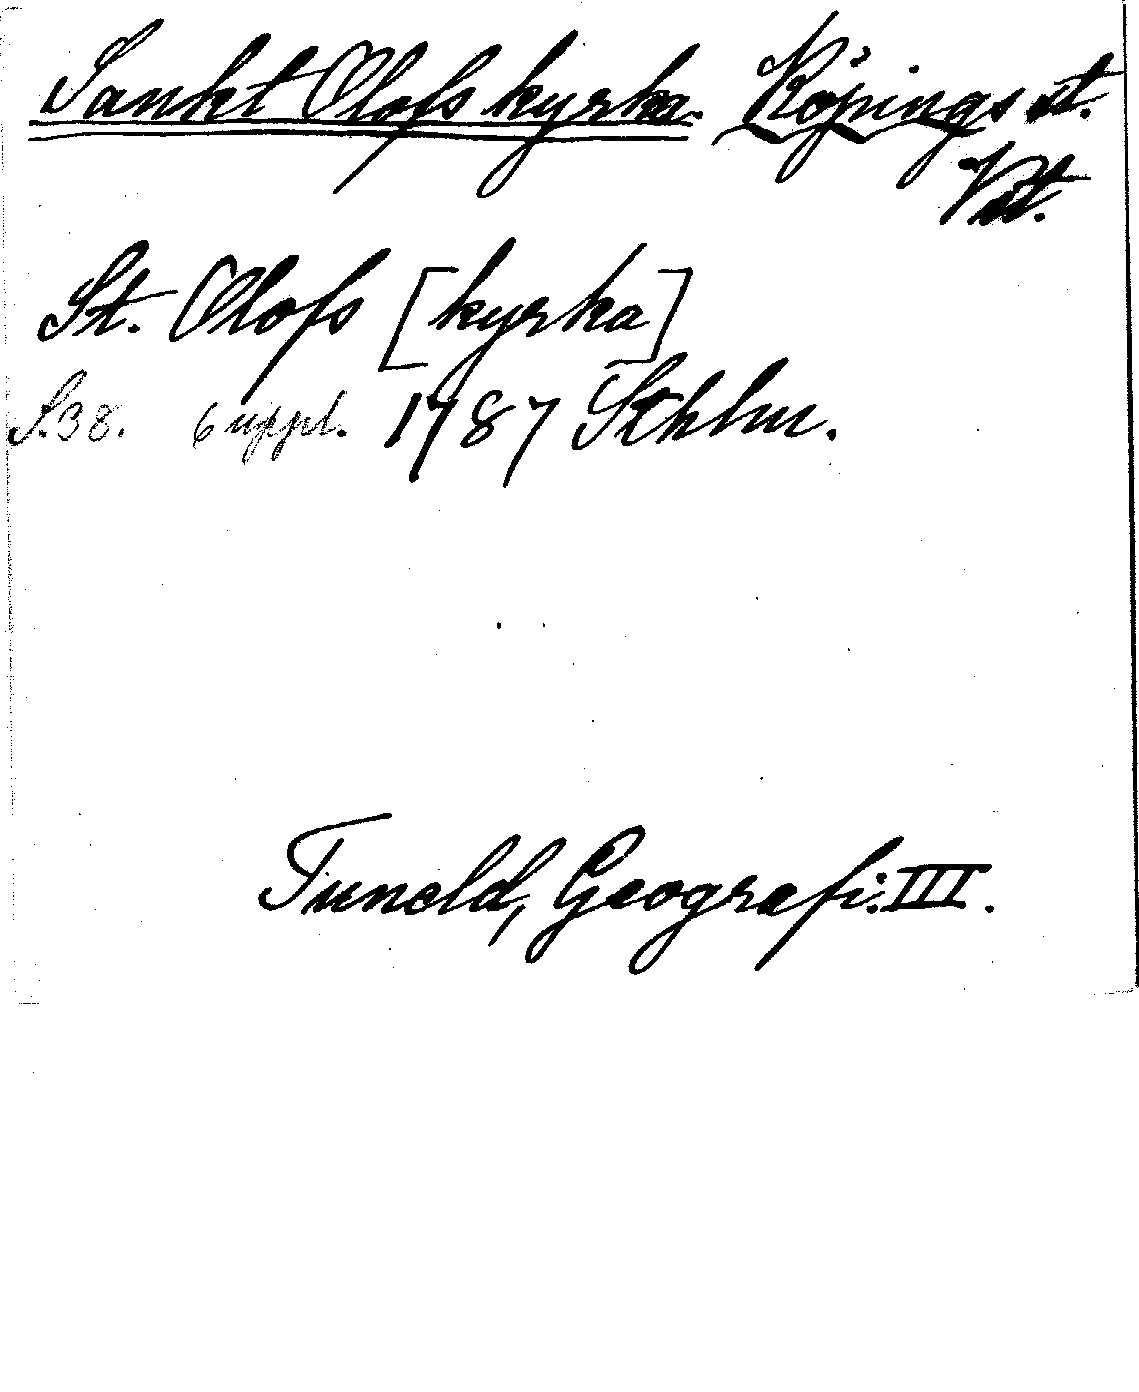 Sankt Olofs kyrka. Köpings st.
Vst.
St. Olofs [kyrka]
S. 38. 6 uppl. 1787 Sthlm.
Tuneld, Geografi. III.